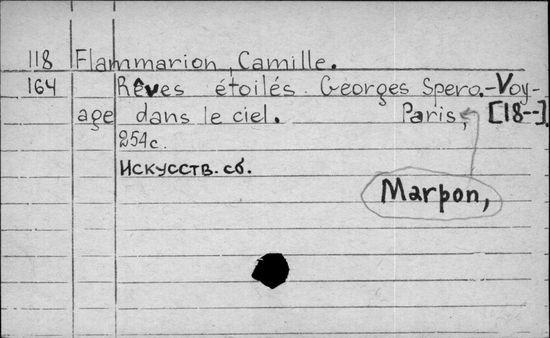 118 Flammarion, Camille.
164 Rêves étoilés. Georges Spero.-Voy-
age dans le ciel. Paris, [18--].
254с.
Искусств. сб.
Marpon,